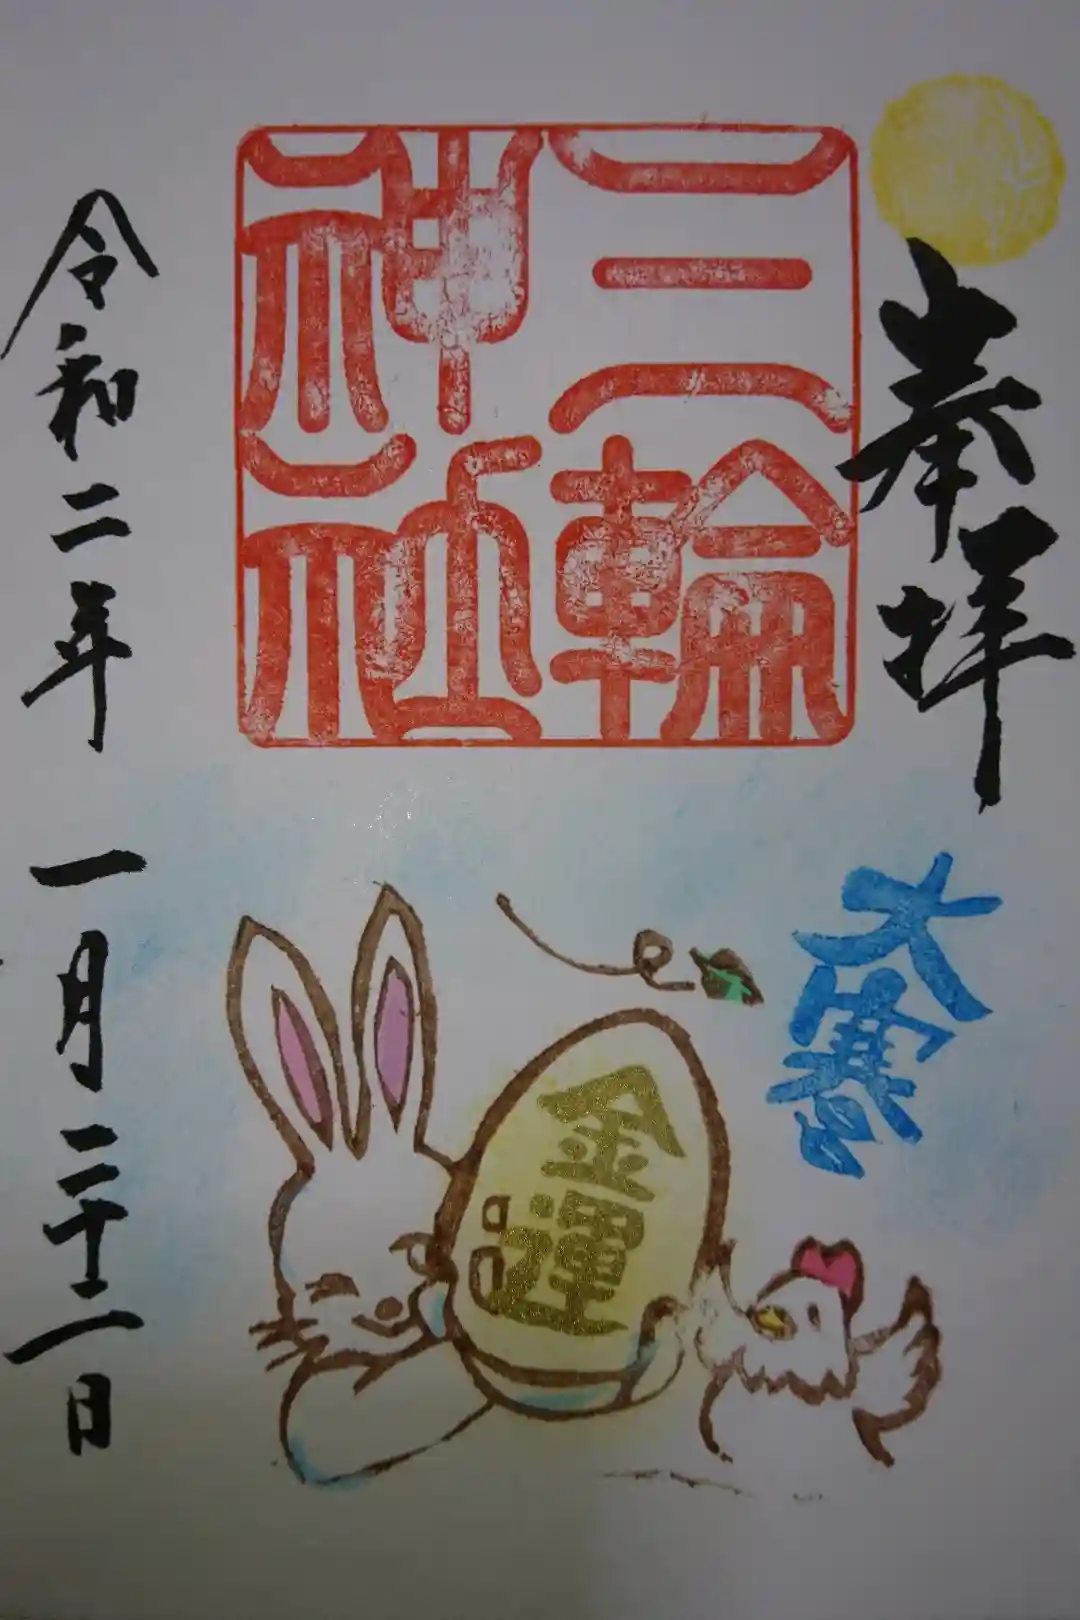 奉拝
大寒
三輪
神社
金運
令和二年一月二十二日